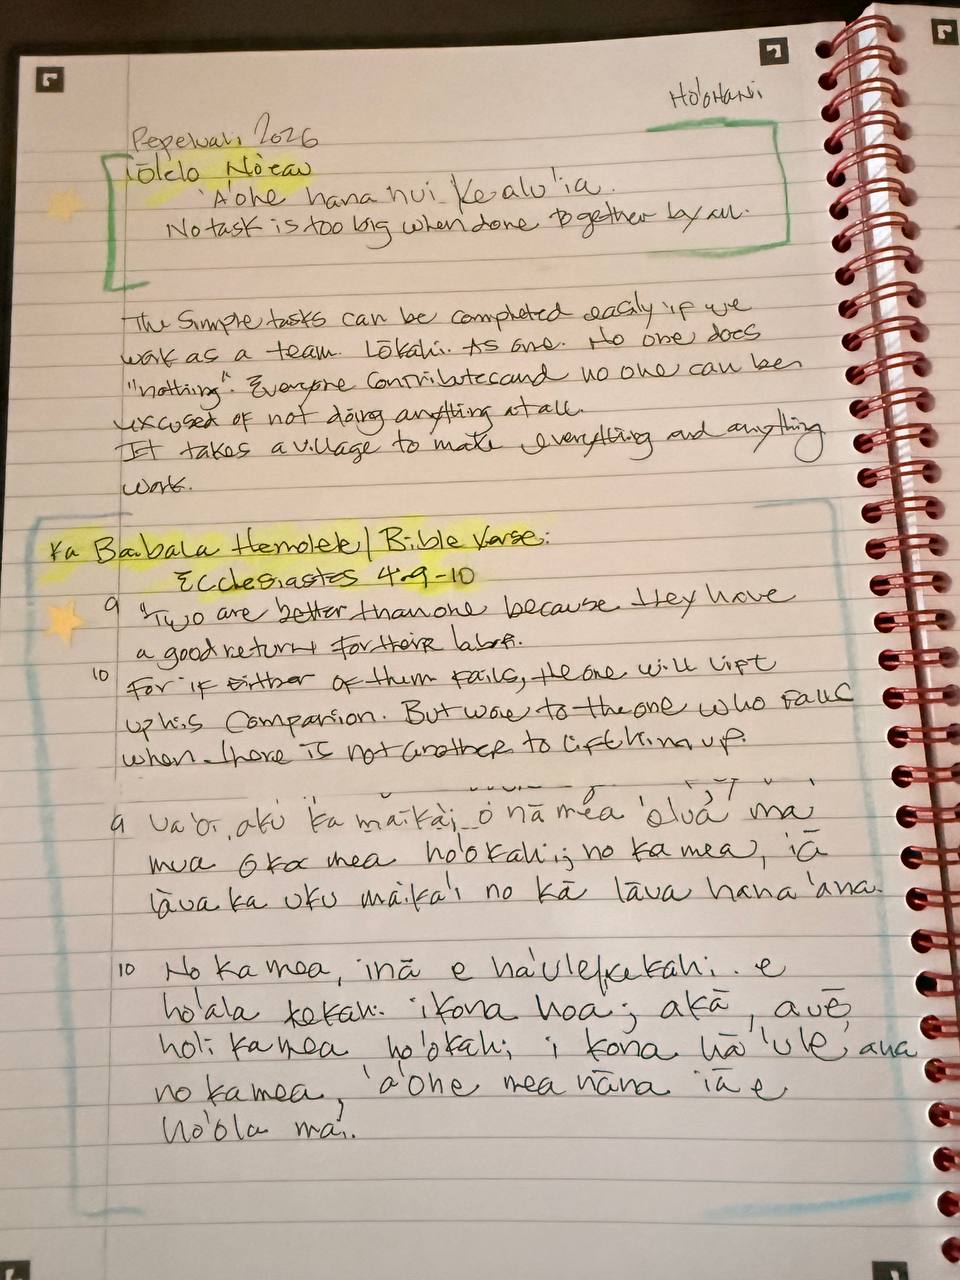 Ho'oHaNi
Pepeluali 2026
'Ōlelo No'eau
'A'ohe hana nui ke alu'ia.
No task is too big when done together by all.
The Simple tasks can be completed easily if we
work as a team. Lōkahi. As one. No one does
"nothing". Everyone contributes and no one can be
excused of not doing anything at all.
It takes a village to make everything and anything
work.
Ka Baibala Hemolele/Bible Verse:
Ecclesiastes 4:9-10
9 "Two are better than one because they have
a good return for their labor.
10 For if either of them falls, the one will lift
up his companion. But woe to the one who falls
when there is not another to lift him up.
9 Ua 'oi aku ka maika'i o nā mea 'eluа ma
mua o ka mea ho'okahi; no ka mea, iā
lāua ka uku maika'i no kā lāua hana 'ana.
10 No ka mea, inā e hā'ule kekahi e
ho'āla kekahi i kona hoa; akā, auē
ho'i ka mea ho'okahi i kona hā'ule 'ana
no ka mea, 'a'ohe mea nāna iā e
ho'ōla mai.